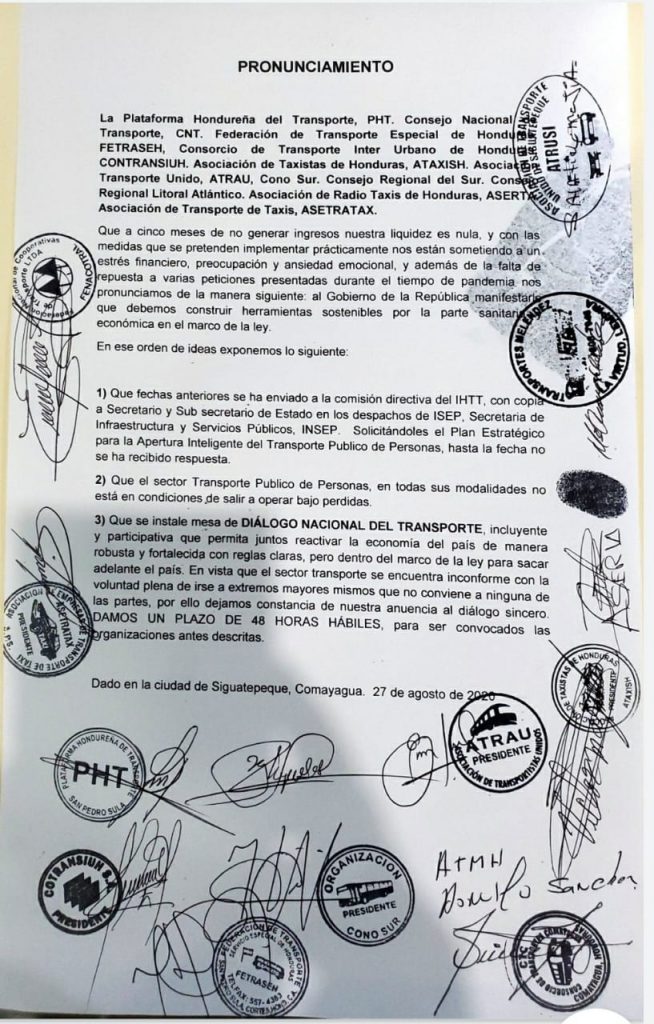 PRONUNCIAMIENTO
La Plataforma Hondureña del Transporte, PHT. Consejo Nacional
Transporte, CNT. Federación de Transporte Especial de
FETRASEH, Consorcio de Transporte Inter Urbano de
CONTRANSIUH. Asociación de Taxistas de Honduras, ATAXISH.
Transporte Unido, ATRAU, Cono Sur. Consejo Regional del Sur.
Regional Litoral Atlántico. Asociación de Radio Taxis de Honduras,
Asociación de Transporte de Taxis, ASETRATAX.
Que a cinco meses de no generar ingresos nuestra liquidez es nula, y con las
medidas que se pretenden implementar prácticamente nos están sometiendo a un
estrés financiero, preocupación y ansiedad emocional, y además de la falta de
repuesta a varias peticiones presentadas durante el tiempo de pandemia nos
pronunciamos de la manera siguiente: al Gobierno de la República
que debemos construir herramientas sostenibles por la parte
económica en el marco de la ley.
En ese orden de ideas exponemos lo siguiente:
1) Que fechas anteriores se ha enviado a la comisión directiva del IHTT, con copia
a Secretario y Sub secretario de Estado en los despachos de ISEP, Secretaria de
Infraestructura y Servicios Públicos, INSEP. Solicitándoles el Plan Estratégico
para la Apertura Inteligente del Transporte Publico de Personas, hasta la fecha no
se ha recibido respuesta.
2) Que el sector Transporte Publico de Personas, en todas sus modalidades no
está en condiciones de salir a operar bajo perdidas.
3) Que se instale mesa de DIÁLOGO NACIONAL DEL TRANSPORTE, incluyente
y participativa que permita juntos reactivar la economía del país de manera
robusta y fortalecida con reglas claras, pero dentro del marco de la ley para sacar
adelante el país. En vista que el sector transporte se encuentra inconforme con la
voluntad plena de irse a extremos mayores mismos que no conviene a ninguna de
las partes, por ello dejamos constancia de nuestra anuencia al diálogo sincero.
DAMOS UN PLAZO DE 48 HORAS HÁBILES, para ser convocados las
organizaciones antes descritas.
Dado en la ciudad de Siguatepeque, Comayagua. 27 de agosto de 2020
ATRUSI
FENACOTRAL
TRANSPORTES MELENDEZ
LA VIRTUD, LEMPIRA
ASERVA
ASETRATAX
PRESIDENTE
ASOCIACION DE TAXISTAS DE HONDURAS
ATAXISH
PLATAFORMA HONDUREÑA DE TRANSPORTE
PHT
SAN PEDRO SULA
ATRAU
PRESIDENTE
ASOCIACIÓN DE TRANSPORTISTAS UNIDOS
COTRANSIUH S.A
PRESIDENTE
ORGANIZACION
PRESIDENTE
CONO SUR
ATMH
Sanchez
FEDERACION DE TRANSPORTE
SERVICIO ESPECIAL DE HONDURAS
FETRASEH
TELFAX: 557-4363
CTC
COMAYAGUA,